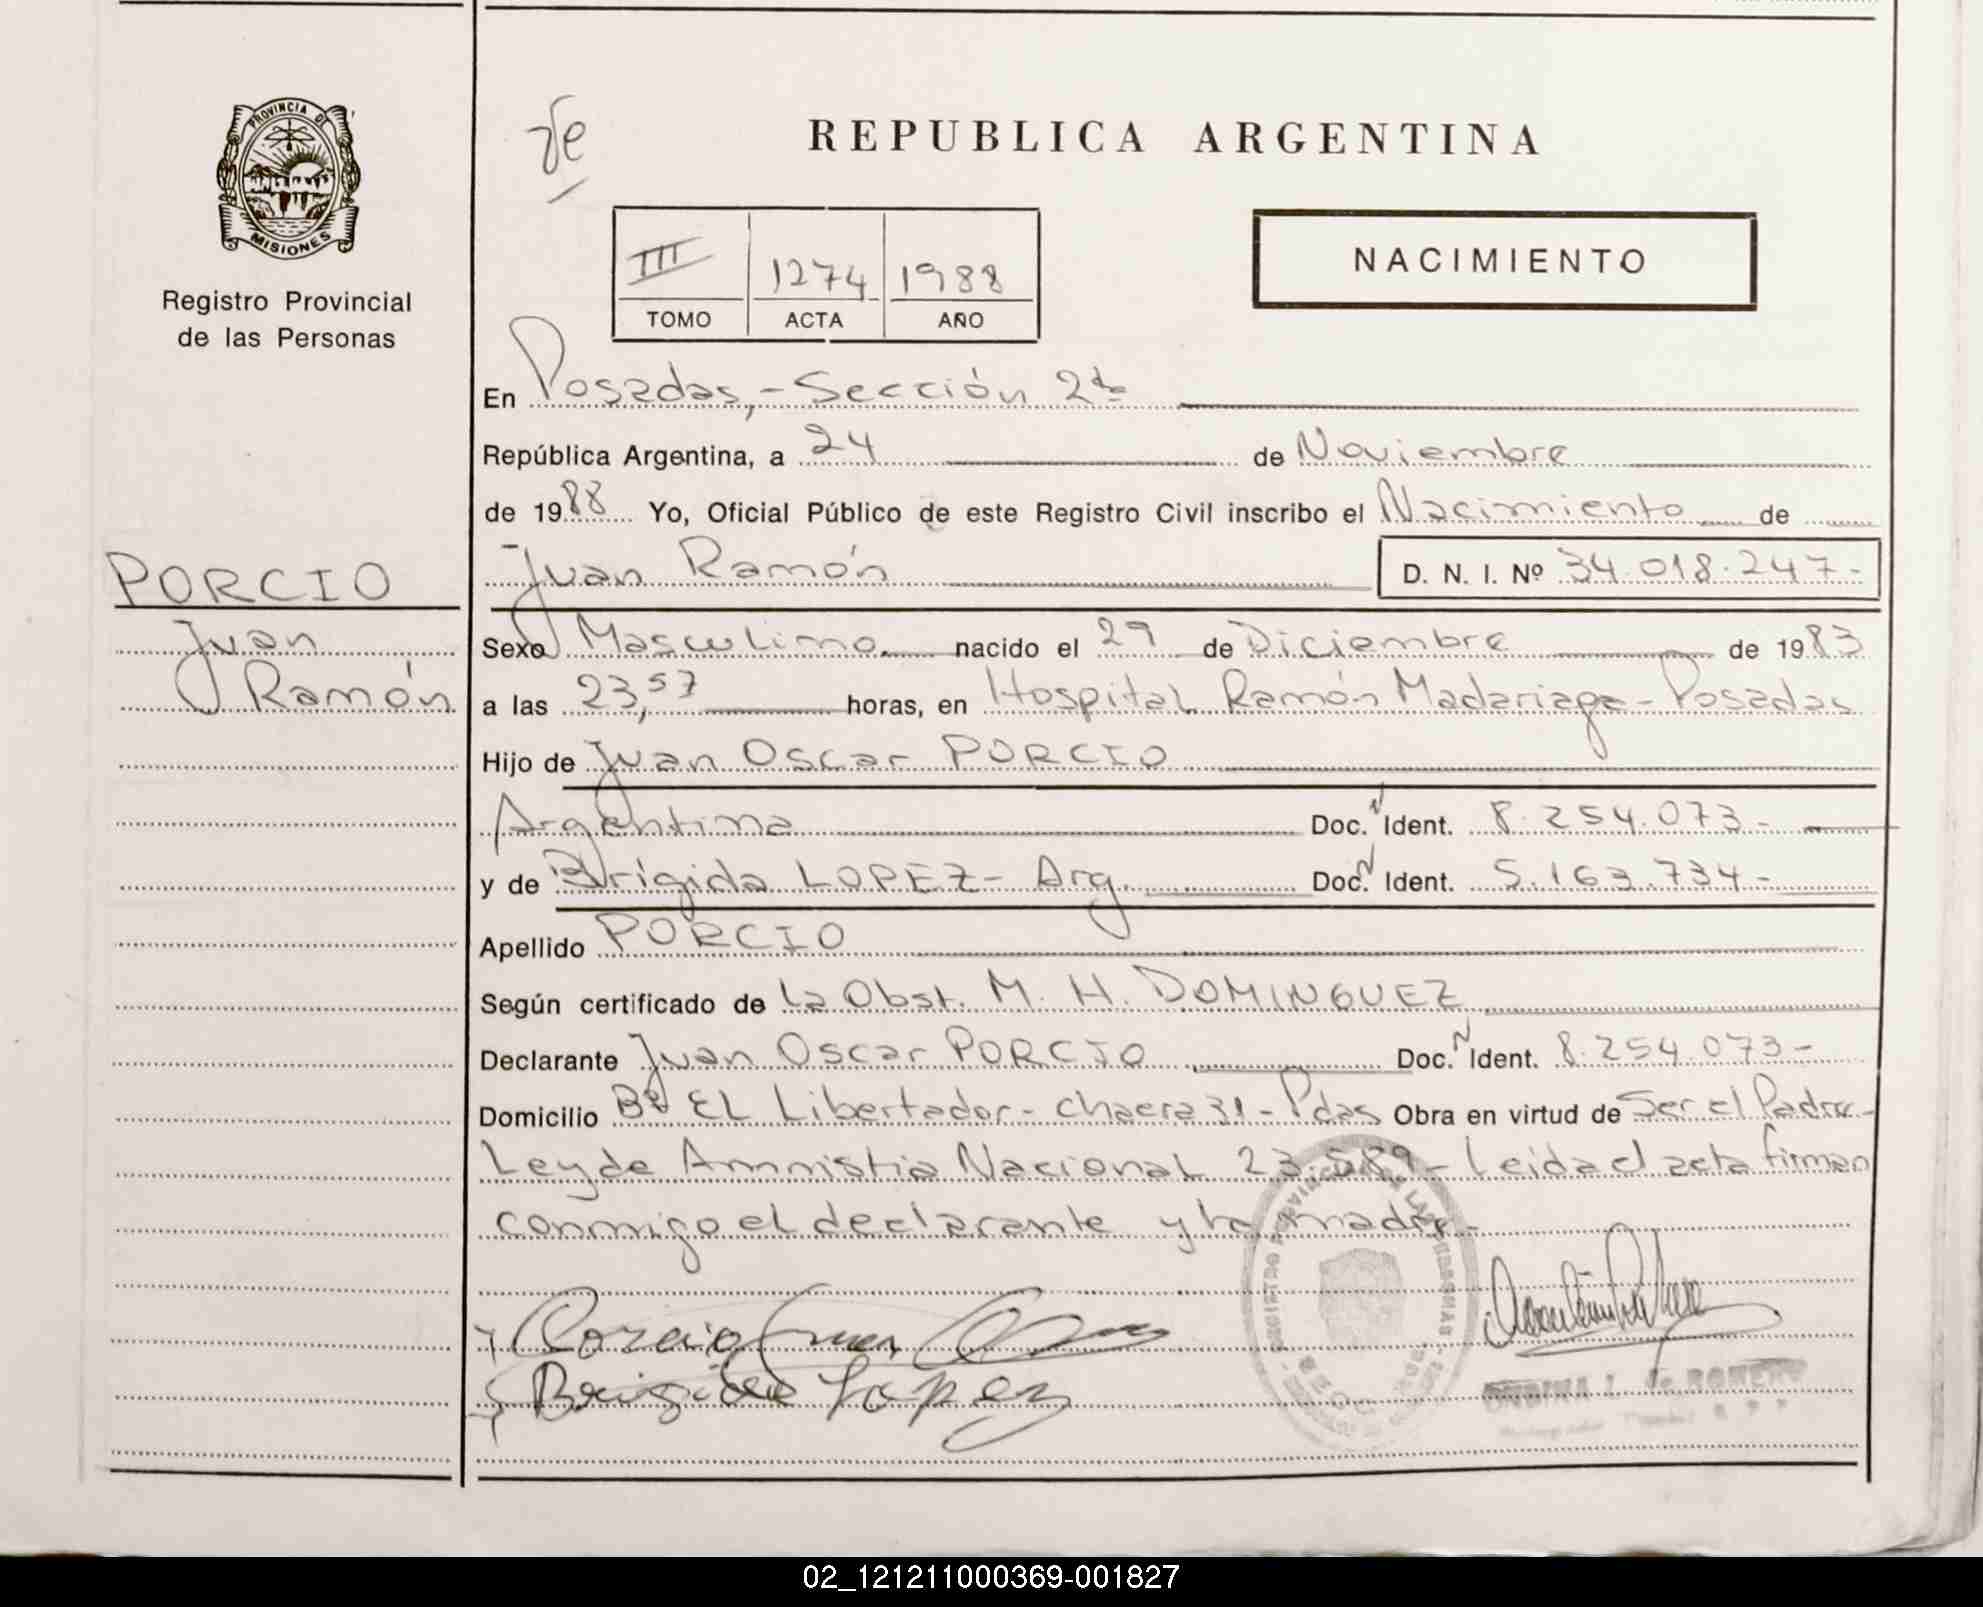 PROVINCIA DE
MISIONES
Registro Provincial
de las Personas
REPUBLICA ARGENTINA
NACIMIENTO
III 1274 1988
TOMO ACTA AÑO
En Posadas,- Sección 2da
República Argentina, a 24 de Noviembre
de 1988 Yo, Oficial Público de este Registro Civil inscribo el Nacimiento de
Juan Ramón D. N. I. Nº 34.018.247-
PORCIO
Juan
Ramón
Sexo Masculino nacido el 29 de Diciembre de 1983
a las 23,57 horas, en Hospital Ramón Madariaga - Posadas
Hijo de Juan Oscar PORCIO
Argentina Doc. N Ident. 8.254.073-
y de Brígida LOPEZ - Arg. Doc. N Ident. 5.163.734-
Apellido PORCIO
Según certificado de La Obst. M. H. DOMINGUEZ
Declarante Juan Oscar PORCIO Doc. N Ident. 8.254.073-
Domicilio Bº EL Libertador - chacra 31 - Pdas Obra en virtud de Ser el Padre-
Ley de Amnistia Nacional 23.589 - Leida el acta firman
conmigo el declarante y la madre-
Porcio Juan
Brigida Lopez
02_121211000369-001827